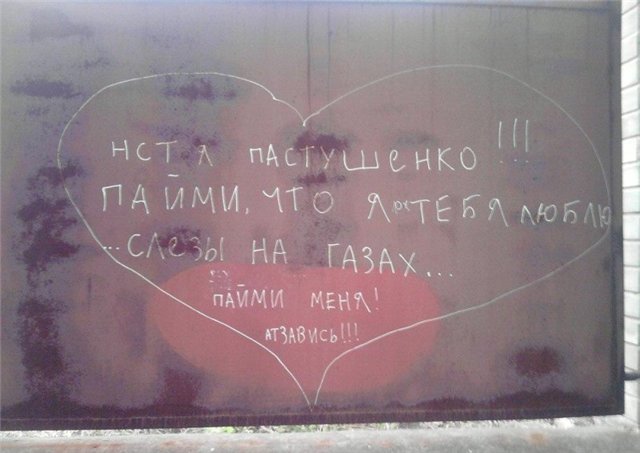 НСТЯ ПАСТУШЕНКО!!!
ПАЙМИ, ЧТО Я ТЕБЯ ЛЮБЛЮ
...СЛЕЗЫ НА ГАЗАХ...
ПАЙМИ МЕНЯ!
АТЗАВИСЬ!!!